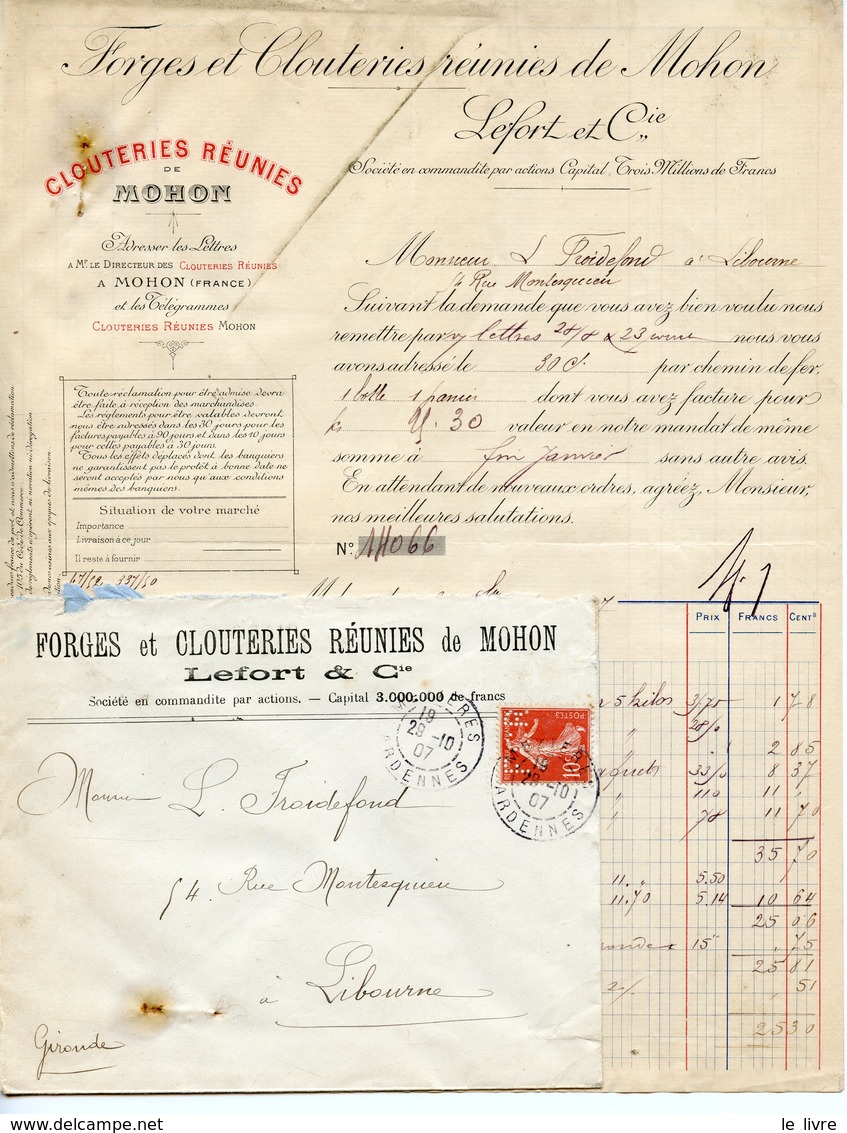 Forges et Clouteries réunies de Mohon
Lefort et Cie
Société en commandite par actions Capital Trois Millions de Francs
CLOUTERIES RÉUNIES
DE
MOHON
Adresser les Lettres
A MR. LE DIRECTEUR DES CLOUTERIES RÉUNIES
A MOHON (FRANCE)
et les Télégrammes
CLOUTERIES RÉUNIES MOHON
Toute réclamation pour être admise devra
être faite à réception des marchandises.
Les règlements pour être valables devront
nous être adressés dans les 30 jours pour les
factures payables à 90 jours et dans les 10 jours
pour celles payables à 30 jours.
Tous les effets déplacés dont les banquiers
ne garantissent pas le protêt à bonne date ne
seront acceptés par nous qu'aux conditions
mêmes des banquiers.
Situation de votre marché
Importance
Livraison à ce jour
Il reste à fournir
67/52 337/50
Monsieur L Froidefond à Libourne
Rue Montesquieu
Suivant la demande que vous avez bien voulu nous
remettre par lettres 28/8 & 23 nous vous
avons adressé le 30 Ct. par chemin de fer,
1 balle 1 panier dont vous avez facture pour
25.30 valeur en notre mandat de même
somme à fin Janvier sans autre avis.
En attendant de nouveaux ordres, agréez, Monsieur,
nos meilleures salutations.
No. 14066
PRIX FRANCS CENTS
5 kilos 3/75 1 78
28/0
2 85
paquets 33/0 8 37
110 11 "
78 11 70
35 70
11. " 5.50
11.70 5.14 10 64
25 06
15 75
25 81
2% 51
25 30
FORGES et CLOUTERIES RÉUNIES de MOHON
Lefort & Cie
Société en commandite par actions. — Capital 3.000.000 de francs
19
29 -10
07
ARDENNES
POSTES
10c
29 -10
07
ARDENNES
Monsieur L. Froidefond
54. Rue Montesquieu
à Libourne
Gironde
le livre